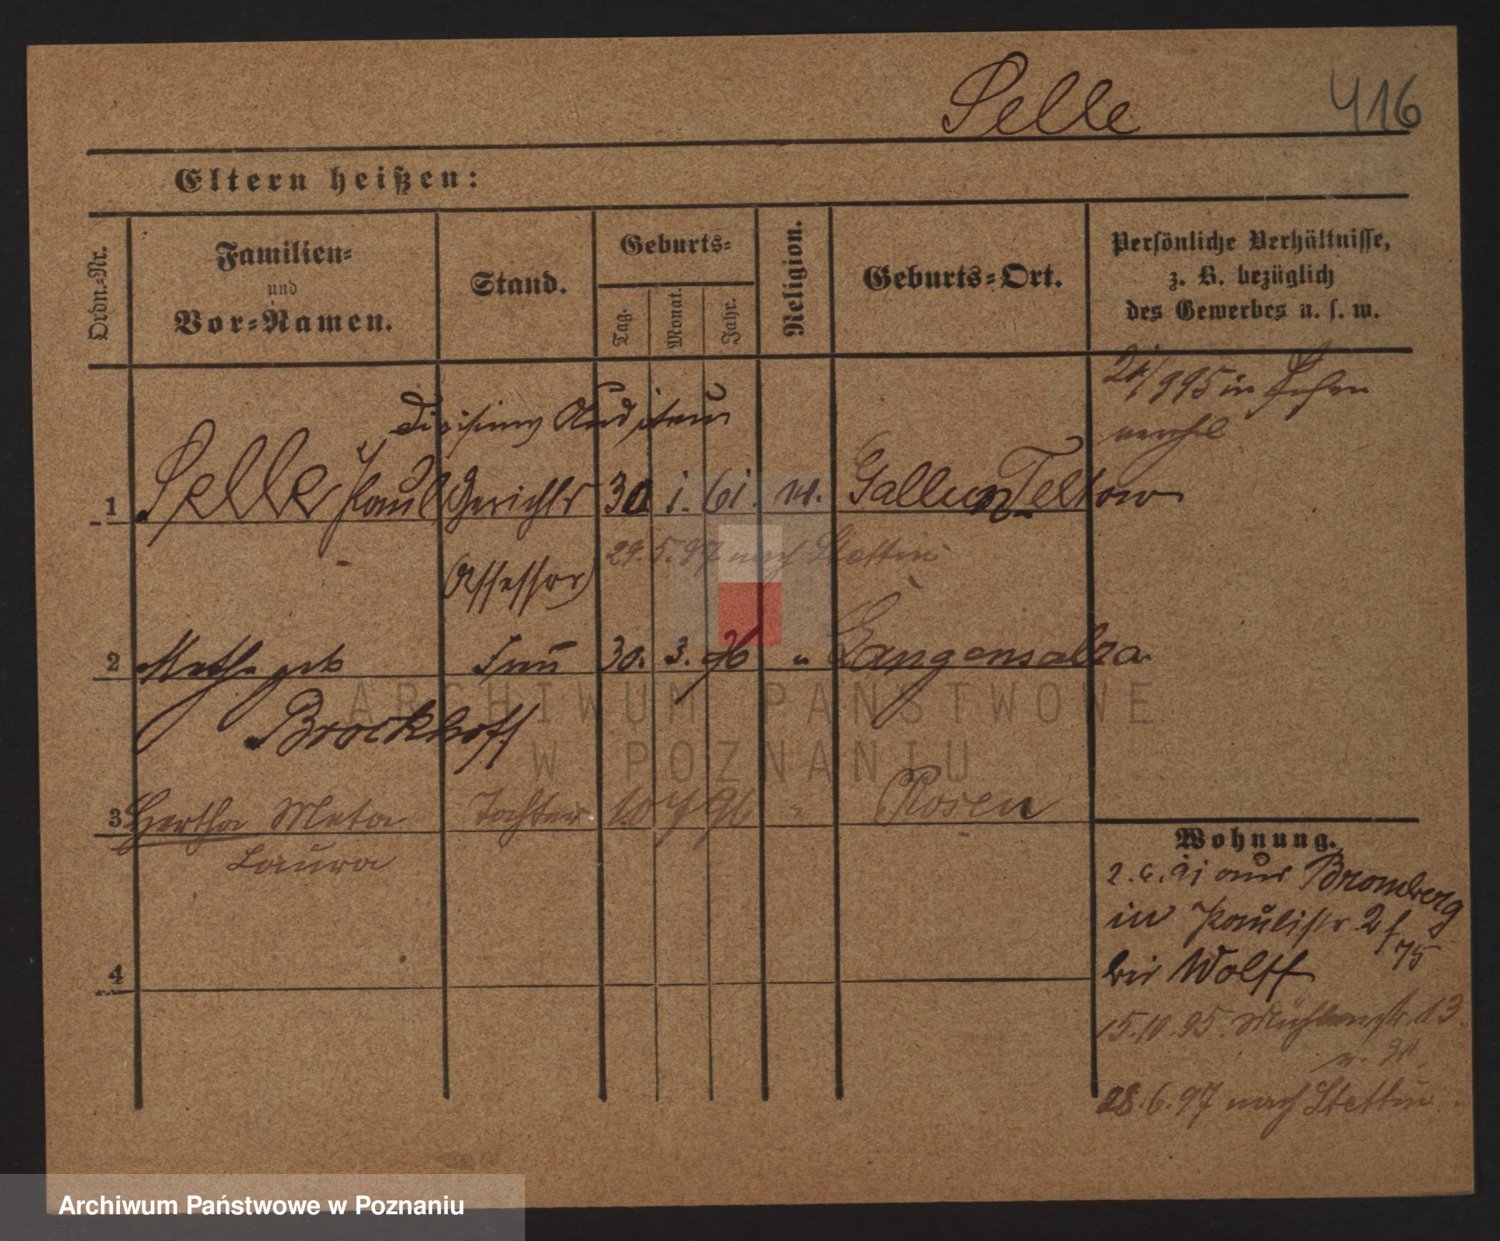 Selle 416
Eltern heißen:
Ordn.-Nr.
Familien-
und
Vor-Namen.
Stand.
Geburts-
Tag.
Monat.
Jahr.
Religion.
Geburts-Ort.
Persönliche Verhältnisse,
z. B. bezüglich
des Gewerbes u. s. w.
Divisions Auditeur
1 Selle Paul Gerichts 30 1. 61. Gallun Teltow
Assessor
29.5.97 nach Stettin
2 geb Frau 30. 3. 76 " Langensalza
Brockhoff
3 Hertha Meta Tochter 10 7 96 " Posen
Laura
4
in Posen
Wohnung.
2.6.91 aus Bromberg
in Paulistr 2
75
bei Wolff
15.10.95 Mühlenstr. 13
28.6.97 nach Stettin
ARCHIWUM PAŃSTWOWE
W POZNANIU
Archiwum Państwowe w Poznaniu